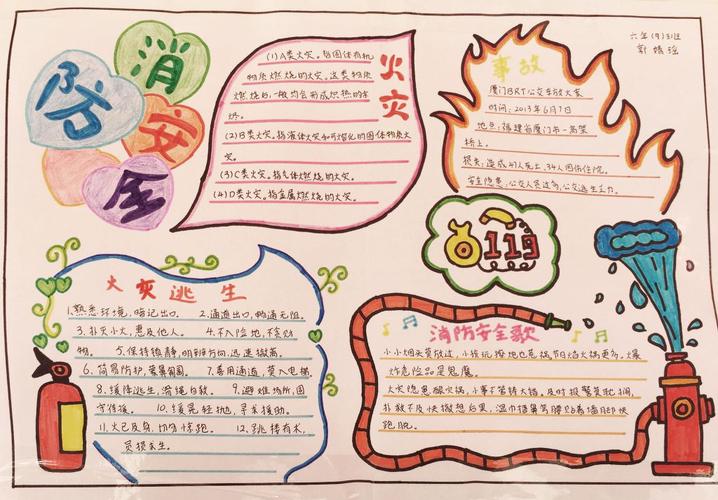 消
防
安
全
(1)A类火灾。指固体有机
物质燃烧的火灾。这类物质
燃烧后一般均会形成炽热的余
烬。
(2)B类火灾。指液体火灾和可熔化的固体物质火
灾。
(3)C类火灾。指气体燃烧的火灾。
(4)D类火灾。指金属燃烧的火灾。
火灾
事故
厦门BRT公交车放火案
时间:2013年6月7日
地点:福建省厦门市一高架
桥上。
损失:造成47人死亡,34人因伤住院。
安全隐患:公交人员过多,公交逃生乏力。
六年(9)班
郭
119
火灾逃生
1.熟悉环境,暗记出口。 2.通道出口,畅通无阻。
3.扑灭小火,惠及他人。 4.不入险地,不贪财
物。 5.保持镇静,明辨方向,迅速撤离。
6.简易防护,蒙鼻匍匐。 7.善用通道,莫入电梯。
8.缓降逃生,滑绳自救。 9.避难场所,固
守待援。 10.缓晃轻抛,寻求援助。
11.火已及身,切勿惊跑。 12.跳楼有术,
虽损求生。
消防安全歌
小小烟头莫放过,小孩玩火也惹祸。节日焰火猛多,爆
炸危险品是恶魔。
火灾隐患酿火祸,小事不管铸大错。及时报警莫耽搁,
扑救不及快撤
跑脱。